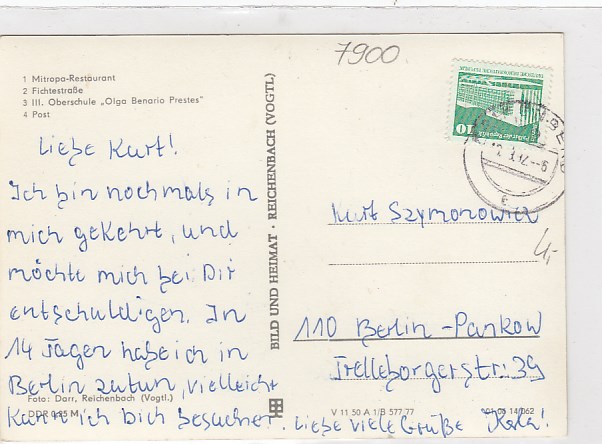 7900
1 Mitropa-Restaurant
2 Fichtestraße
3 III. Oberschule „Olga Benario Prestes"
4 Post
Liebe Kurt!
Ich bin nochmals in
mich gekehrt, und
möchte mich bei Dir
entschuldigen. In
14 Tagen habe ich in
Berlin zutun, vielleicht
Kann ich Dich besuchen. Liebe viele Grüße
Foto: Darr, Reichenbach (Vogtl.)
DDR 0,25 M
BILD UND HEIMAT · REICHENBACH (VOGTL)
DEUTSCHE DEMOKRATISCHE REPUBLIK
Palast der Republik
10
Kurt Szymonowicz
4,
110 Berlin-Pankow
Trelleborgerstr. 39
V 11 50 A 1/B 577 77
14/062